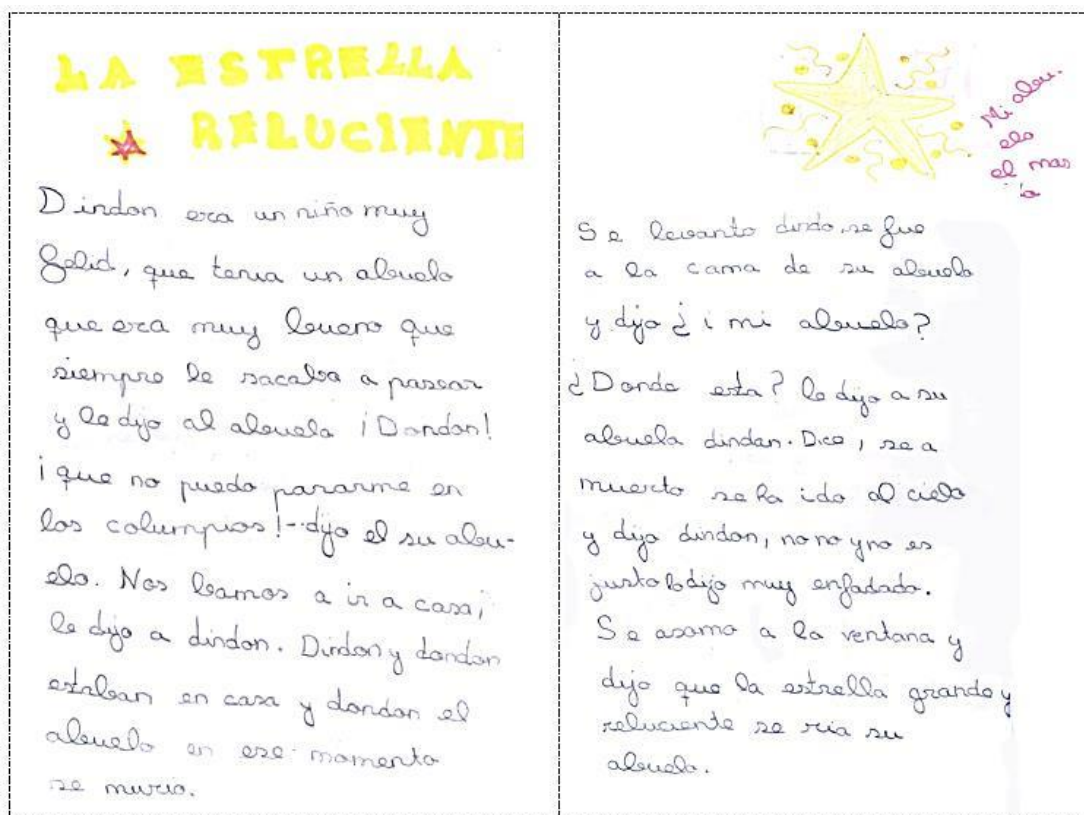 LA ESTRELLA
RELUCIENTE
Dindon era un niño muy
felid, que tenia un abuelo
que era muy bueno que
siempre le sacaba a pasear
y le dijo al abuelo ¡Dondon!
¡que no puedo pararme en
los columpios!-dijo el su abu-
elo. Nos bamos a ir a casa,
le dijo a dindon. Dindon y dondon
estaban en casa y dondon el
abuelo en ese momento
se murio.
Mi abu-
elo
el mas
a
Se levanto dindo, se fue
a la cama de su abuela
y dijo ¿i mi abuelo?
¿Donde esta? le dijo a su
abuela dindan. Dice, se a
muerto se ha ido al cielo
y dijo dindon, no no y no es
justo lo dijo muy enfadado.
Se asomo a la ventana y
dijo que la estrella grande y
reluciente se ria su
abuelo.